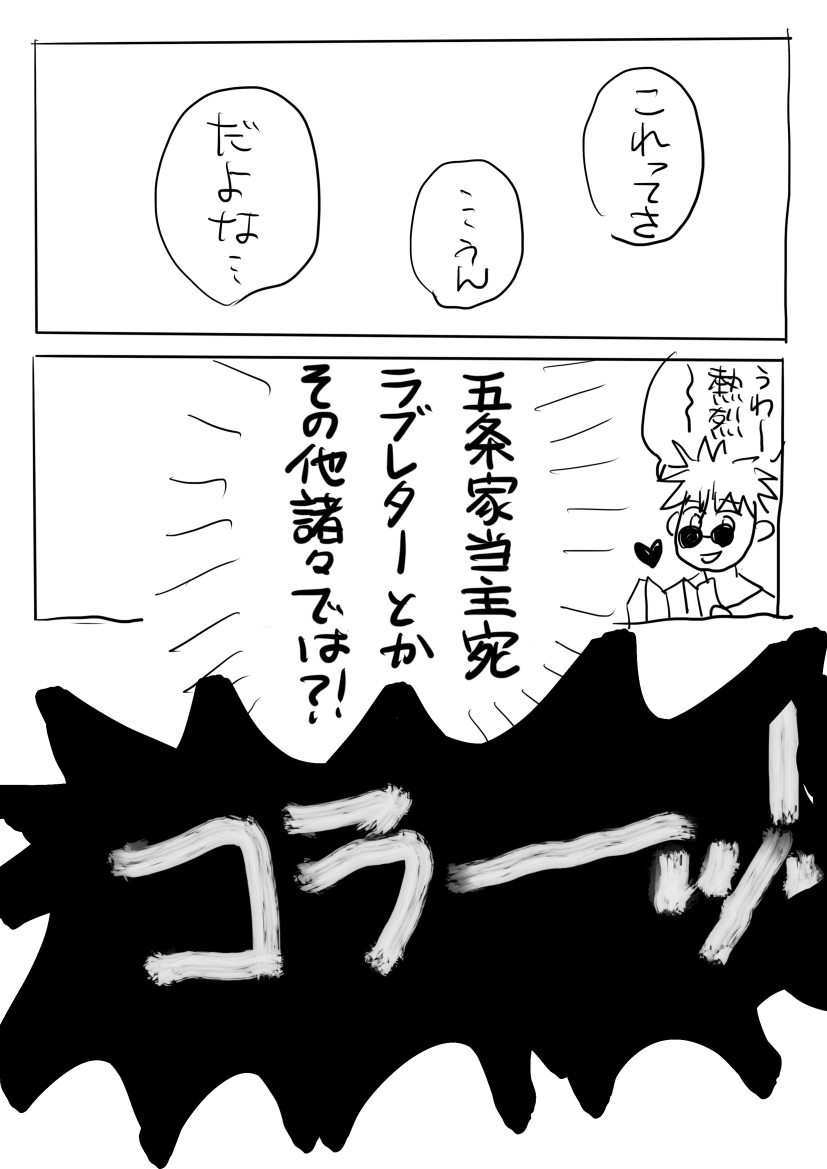 これってさ
…うん
だよな…
うわー
熱烈〜
五条家当主宛
ラブレターとか
その他諸々では?!
コラーッ!